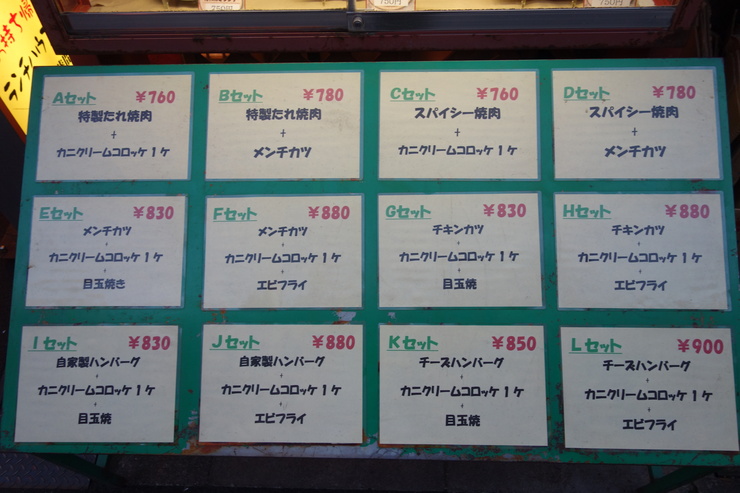 750円
750円
750円
ランチハウ
Aセット ￥760
特製たれ焼肉
+
カニクリームコロッケ1ケ
Bセット ￥780
特製たれ焼肉
+
メンチカツ
Cセット ￥760
スパイシー焼肉
+
カニクリームコロッケ1ケ
Dセット ￥780
スパイシー焼肉
+
メンチカツ
Eセット ￥830
メンチカツ
+
カニクリームコロッケ1ケ
+
目玉焼き
Fセット ￥880
メンチカツ
+
カニクリームコロッケ1ケ
+
エビフライ
Gセット ￥830
チキンカツ
+
カニクリームコロッケ1ケ
+
目玉焼
Hセット ￥880
チキンカツ
+
カニクリームコロッケ1ケ
+
エビフライ
Iセット ￥830
自家製ハンバーグ
+
カニクリームコロッケ1ケ
+
目玉焼
Jセット ￥880
自家製ハンバーグ
+
カニクリームコロッケ1ケ
+
エビフライ
Kセット ￥850
チーズハンバーグ
+
カニクリームコロッケ1ケ
+
目玉焼
Lセット ￥900
チーズハンバーグ
+
カニクリームコロッケ1ケ
+
エビフライ